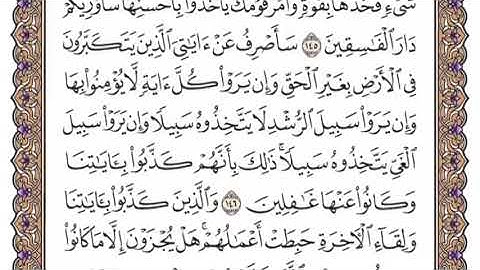 شَيْءٍ فَخُذْهَا بِقُوَّةٍ وَأْمُرْ قَوْمَكَ يَأْخُذُوا۟ بِأَحْسَنِهَا سَأُو۟رِيكُمْ
دَارَ ٱلْفَـٰسِقِينَ ١٤٥ سَأَصْرِفُ عَنْ ءَايَـٰتِىَ ٱلَّذِينَ يَتَكَبَّرُونَ
فِى ٱلْأَرْضِ بِغَيْرِ ٱلْحَقِّ وَإِن يَرَوْا۟ كُلَّ ءَايَةٍ لَّا يُؤْمِنُوا۟ بِهَا
وَإِن يَرَوْا۟ سَبِيلَ ٱلرُّشْدِ لَا يَتَّخِذُوهُ سَبِيلًا وَإِن يَرَوْا۟ سَبِيلَ
ٱلْغَىِّ يَتَّخِذُوهُ سَبِيلًا ۚ ذَٰلِكَ بِأَنَّهُمْ كَذَّبُوا۟ بِـَٔايَـٰتِنَا
وَكَانُوا۟ عَنْهَا غَـٰفِلِينَ ١٤٦ وَٱلَّذِينَ كَذَّبُوا۟ بِـَٔايَـٰتِنَا
وَلِقَآءِ ٱلْـَٔاخِرَةِ حَبِطَتْ أَعْمَـٰلُهُمْ ۚ هَلْ يُجْزَوْنَ إِلَّا مَا كَانُوا۟